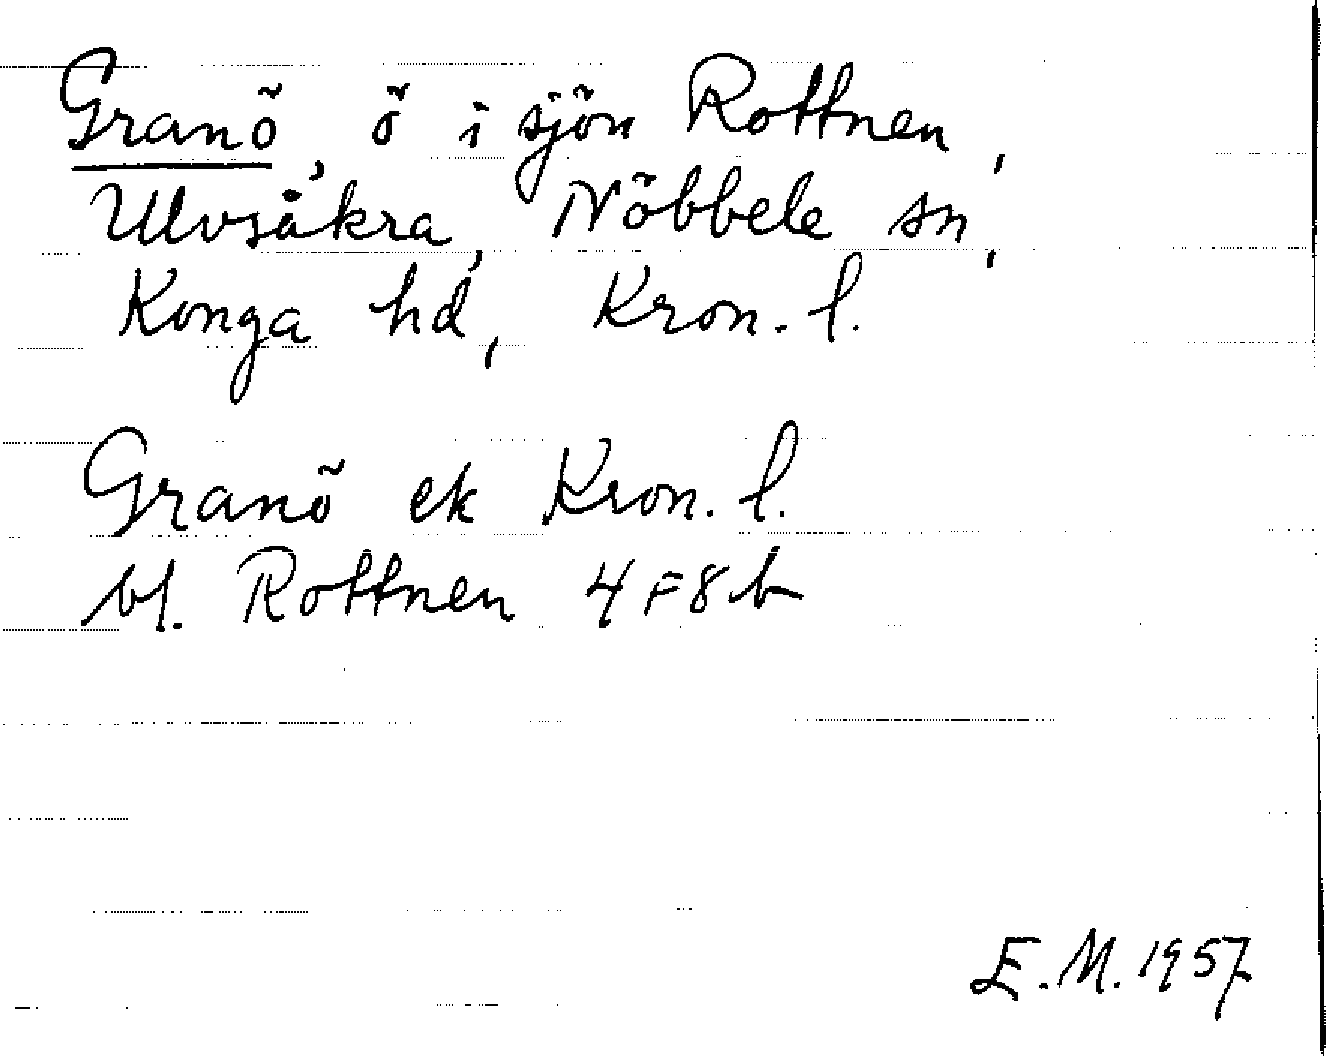 Granö, ö i sjön Rottnen,
Ulvsåkra, Nöbbele sn,
Konga hd, Kron. l.
Granö ek Kron. l.
bl. Rottnen 4F8b
E.M. 1957